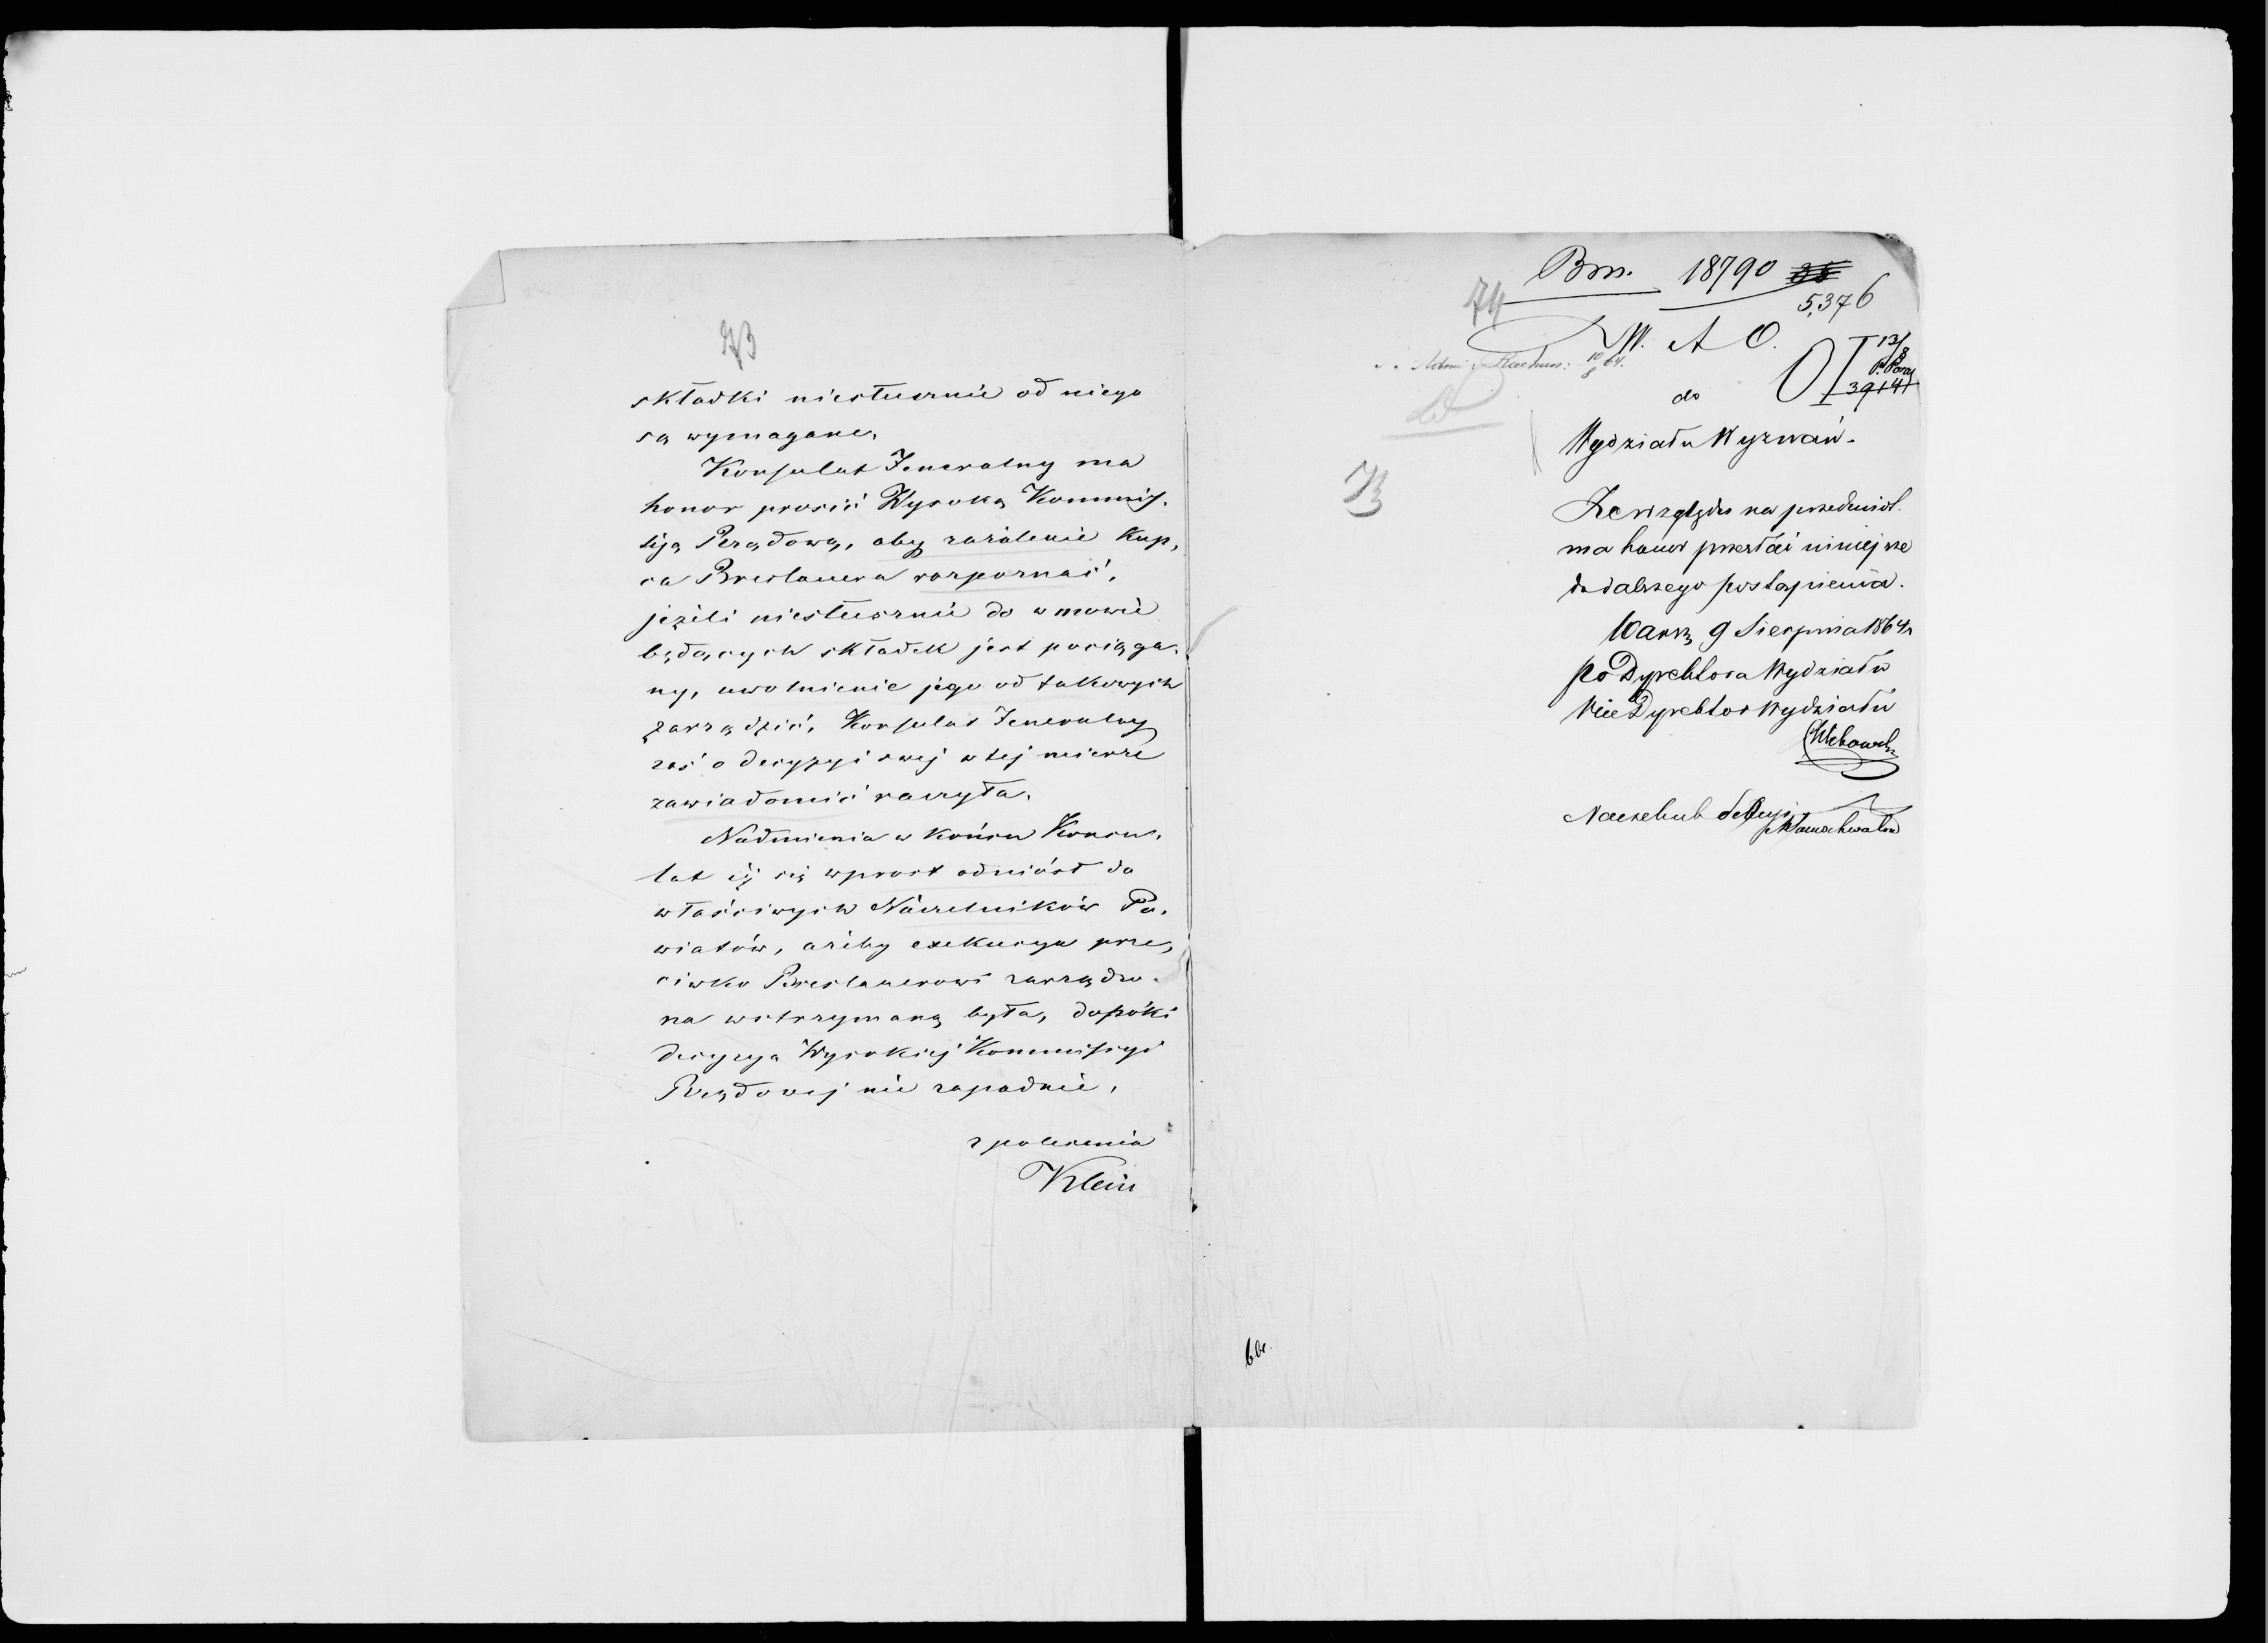 73
składki niesłusznie od niego
są wymagane.
Konsulat Jeneralny ma
honor prosić Wysoką Kommis,
siją Rządową, aby zażalenie Kup,
ca Breslauera rozpoznać,
jeżeli niesłusznie do w mowie
będących składek jest pociąga,
ny, uwolnienie jego od takowych
zarządzić, Konsulat Jeneralny
zaś o decyzyi swej w tej mierze
zawiadomić raczyła.
Nadmienia w końcu Konsu,
lat iż się wprost odniósł do
właściwych Naczelników Po,
wiatów, ażeby exekucya prze,
ciwko Breslauerowi zarządzo,
na wstrzymaną była, dopóki
decyzya Wysokiej Kommissyi
Rządowej nie zapadnie.
z polecenia
Klein
74
Bm. 18790
5,376
W. A O.
do
Wydziału Wyznań.
73
Ze względu na przedmiot
ma honor przesłać niniejsze
do dalszego postąpienia.
Warsz 9 Sierpnia 1864 r
po Dyrektora Wydziału
Vice Dyrektor Wydziału
Naczelnik Sekcyi